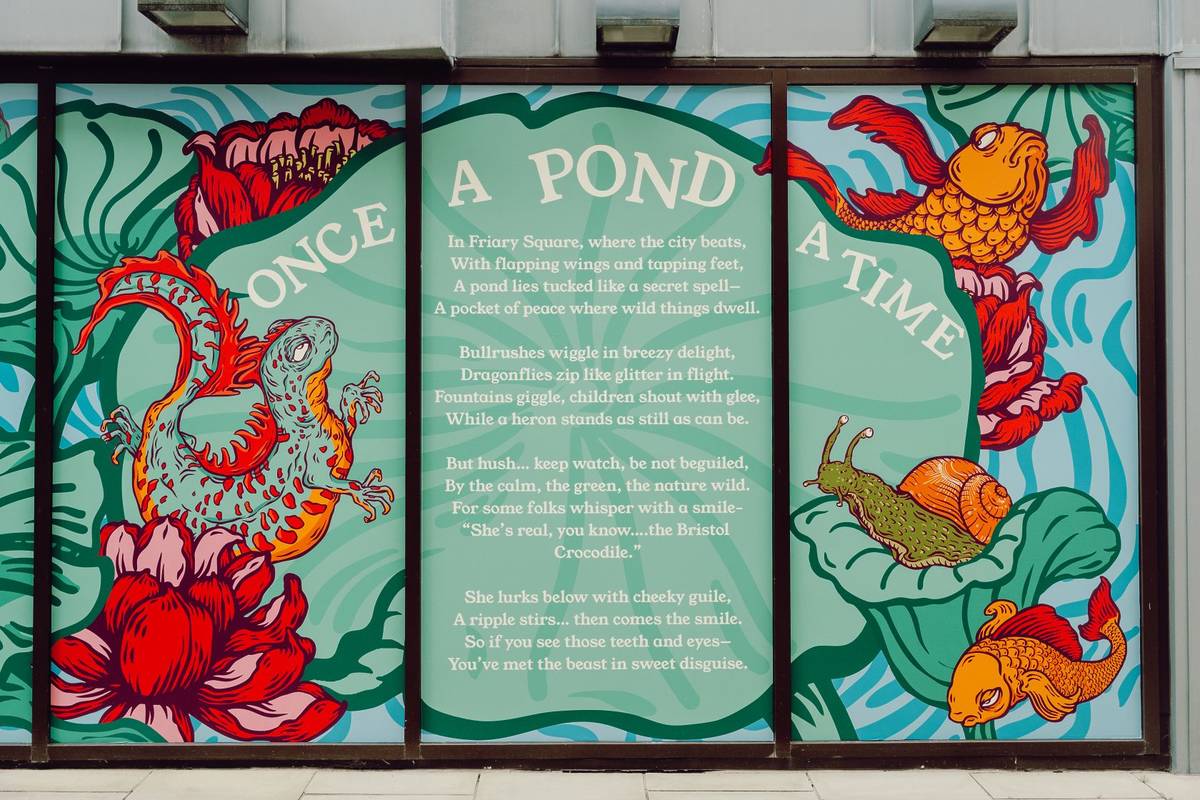 ONCE A POND A TIME
In Friary Square, where the city beats,
With flapping wings and tapping feet,
A pond lies tucked like a secret spell—
A pocket of peace where wild things dwell.
Bullrushes wiggle in breezy delight,
Dragonflies zip like glitter in flight.
Fountains giggle, children shout with glee,
While a heron stands as still as can be.
But hush... keep watch, be not beguiled,
By the calm, the green, the nature wild.
For some folks whisper with a smile-
“She’s real, you know....the Bristol
Crocodile.”
She lurks below with cheeky guile,
A ripple stirs... then comes the smile.
So if you see those teeth and eyes—
You’ve met the beast in sweet disguise.